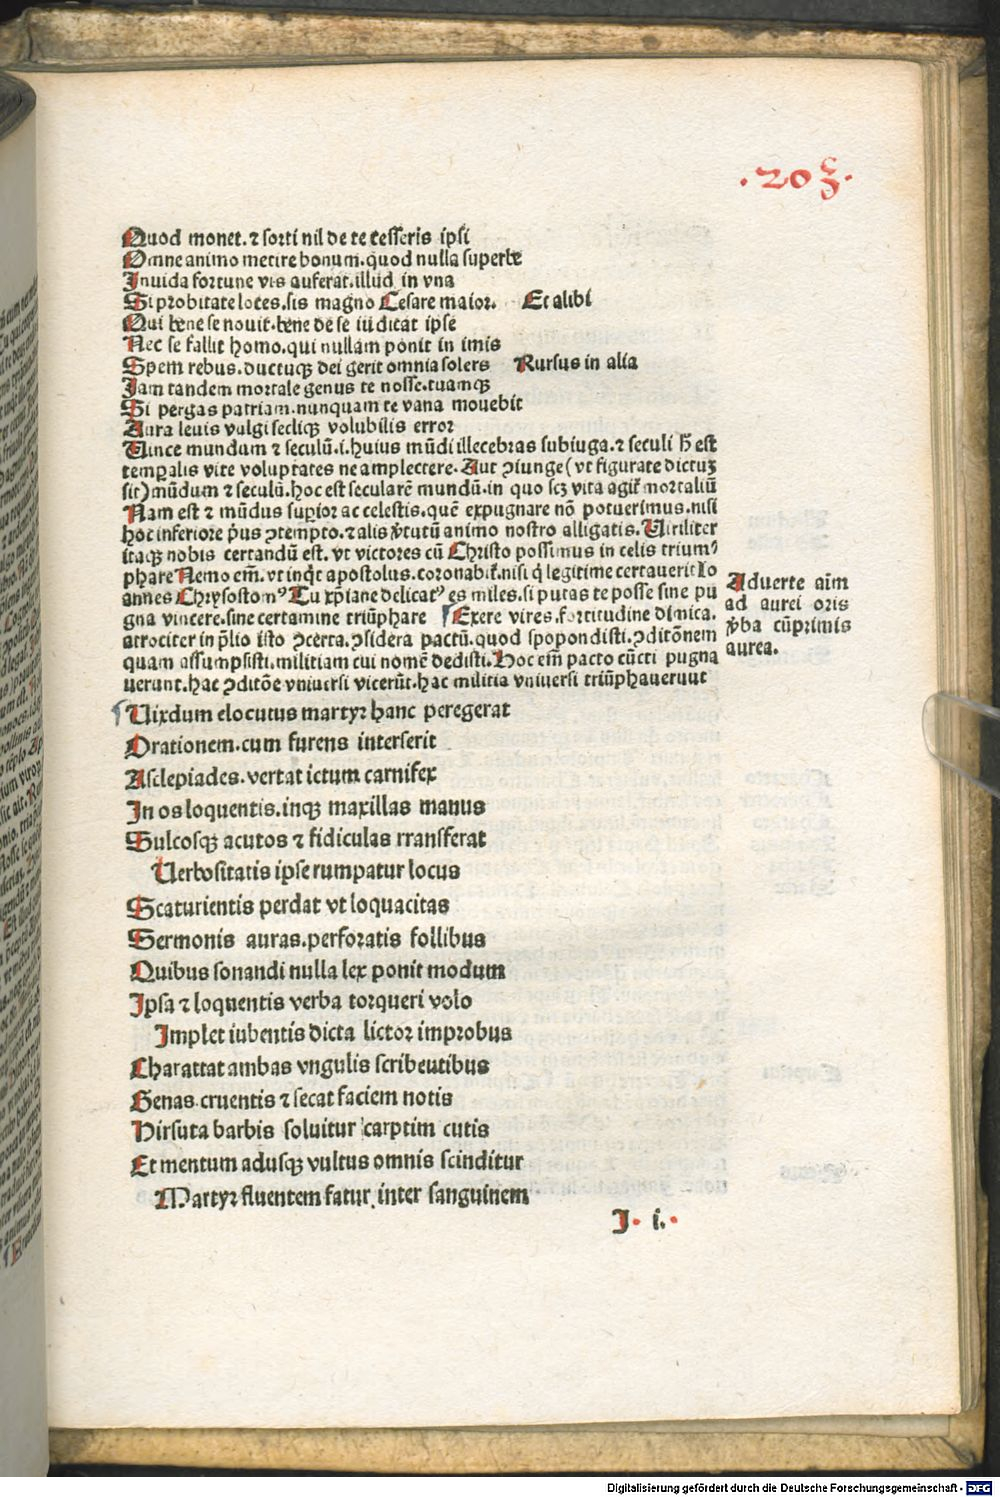 .203.
Quod monet. ⁊ sorti nil de te tesseris ipsi
Omne animo metire bonum. quod nulla superbe
Inuida fortune vis auferat. illud in vna
Si probitate loces. sis magno Cesare maior. Et alibi
Qui bene se nouit. bene de se iudicat ipse
Nec se fallit homo. qui nullam ponit in imis
Spem rebus. ductuqꝫ dei gerit omnia solers Rursus in alia
Jam tandem mortale genus te nosse. tuamqꝫ
Si pergas patriam. nunquam te vana mouebit
Aura leuis vulgi secliqꝫ volubilis error
Uince mundum ⁊ seculū. i. huius mūdi illecebras subiuga. ⁊ seculi h̄ est
temꝑalis vite voluptates ne amplectere. Aut ꝯiunge (vt figurate dictuꝫ
sit) mūdum ⁊ seculū. hoc est secularē mundū. in quo scꝫ vita agit᷑ mortaliū
Nam est ⁊ mūdus suꝑior ac celestis. quē expugnare nō potuerimus. nisi
hoc inferiore p̄us ꝯtempto. ⁊ alis v̓tutū animo nostro alligatis. Uiriliter
itaqꝫ nobis certandū est. vt victores cū Christo possimus in celis triumꝰ
phare Nemo em̄. vt inq̇t apostolus. coronabit᷑. nisi q̇ legitime certauerit Io
annes Chrysostomꝰ Tu xp̄iane delicatꝰ es miles. si putas te posse sine pu
gna vincere. sine certamine triūphare ¶ Exere vires. fortitudine dimica.
atrociter in p̄lio isto ꝯcerta. ꝯsidera pactū. quod spopondisti. ꝯditōnem
quam assumpsisti. militiam cui nomē dedisti. Hoc em̄ pacto cūcti pugna
uerunt. hac ꝯditōe vniuersi vicerūt. hac militia vniuersi triūphaueruut
Aduerte aīm
ad aurei oris
v̓ba cūprimis
aurea.
¶ Uixdum elocutus martyr hanc peregerat
Orationem. cum furens interserit
Asclepiades. vertat ictum carnifex
In os loquentis. inqꝫ maxillas manus
Sulcosqꝫ acutos ⁊ fidiculas rransferat
Uerbositatis ipse rumpatur locus
Scaturientis perdat vt loquacitas
Sermonis auras. perforatis follibus
Quibus sonandi nulla lex ponit modum
Ipsa ⁊ loquentis verba torqueri volo
Implet iubentis dicta lictor improbus
Charattat ambas vngulis scribeutibus
Genas cruentis ⁊ secat faciem notis
Hirsuta barbis soluitur carptim cutis
Et mentum adusqꝫ vultus omnis scinditur
Martyr fluentem fatur inter sanguinem
I. i.
Digitalisierung gefördert durch die Deutsche Forschungsgemeinschaft - DFG